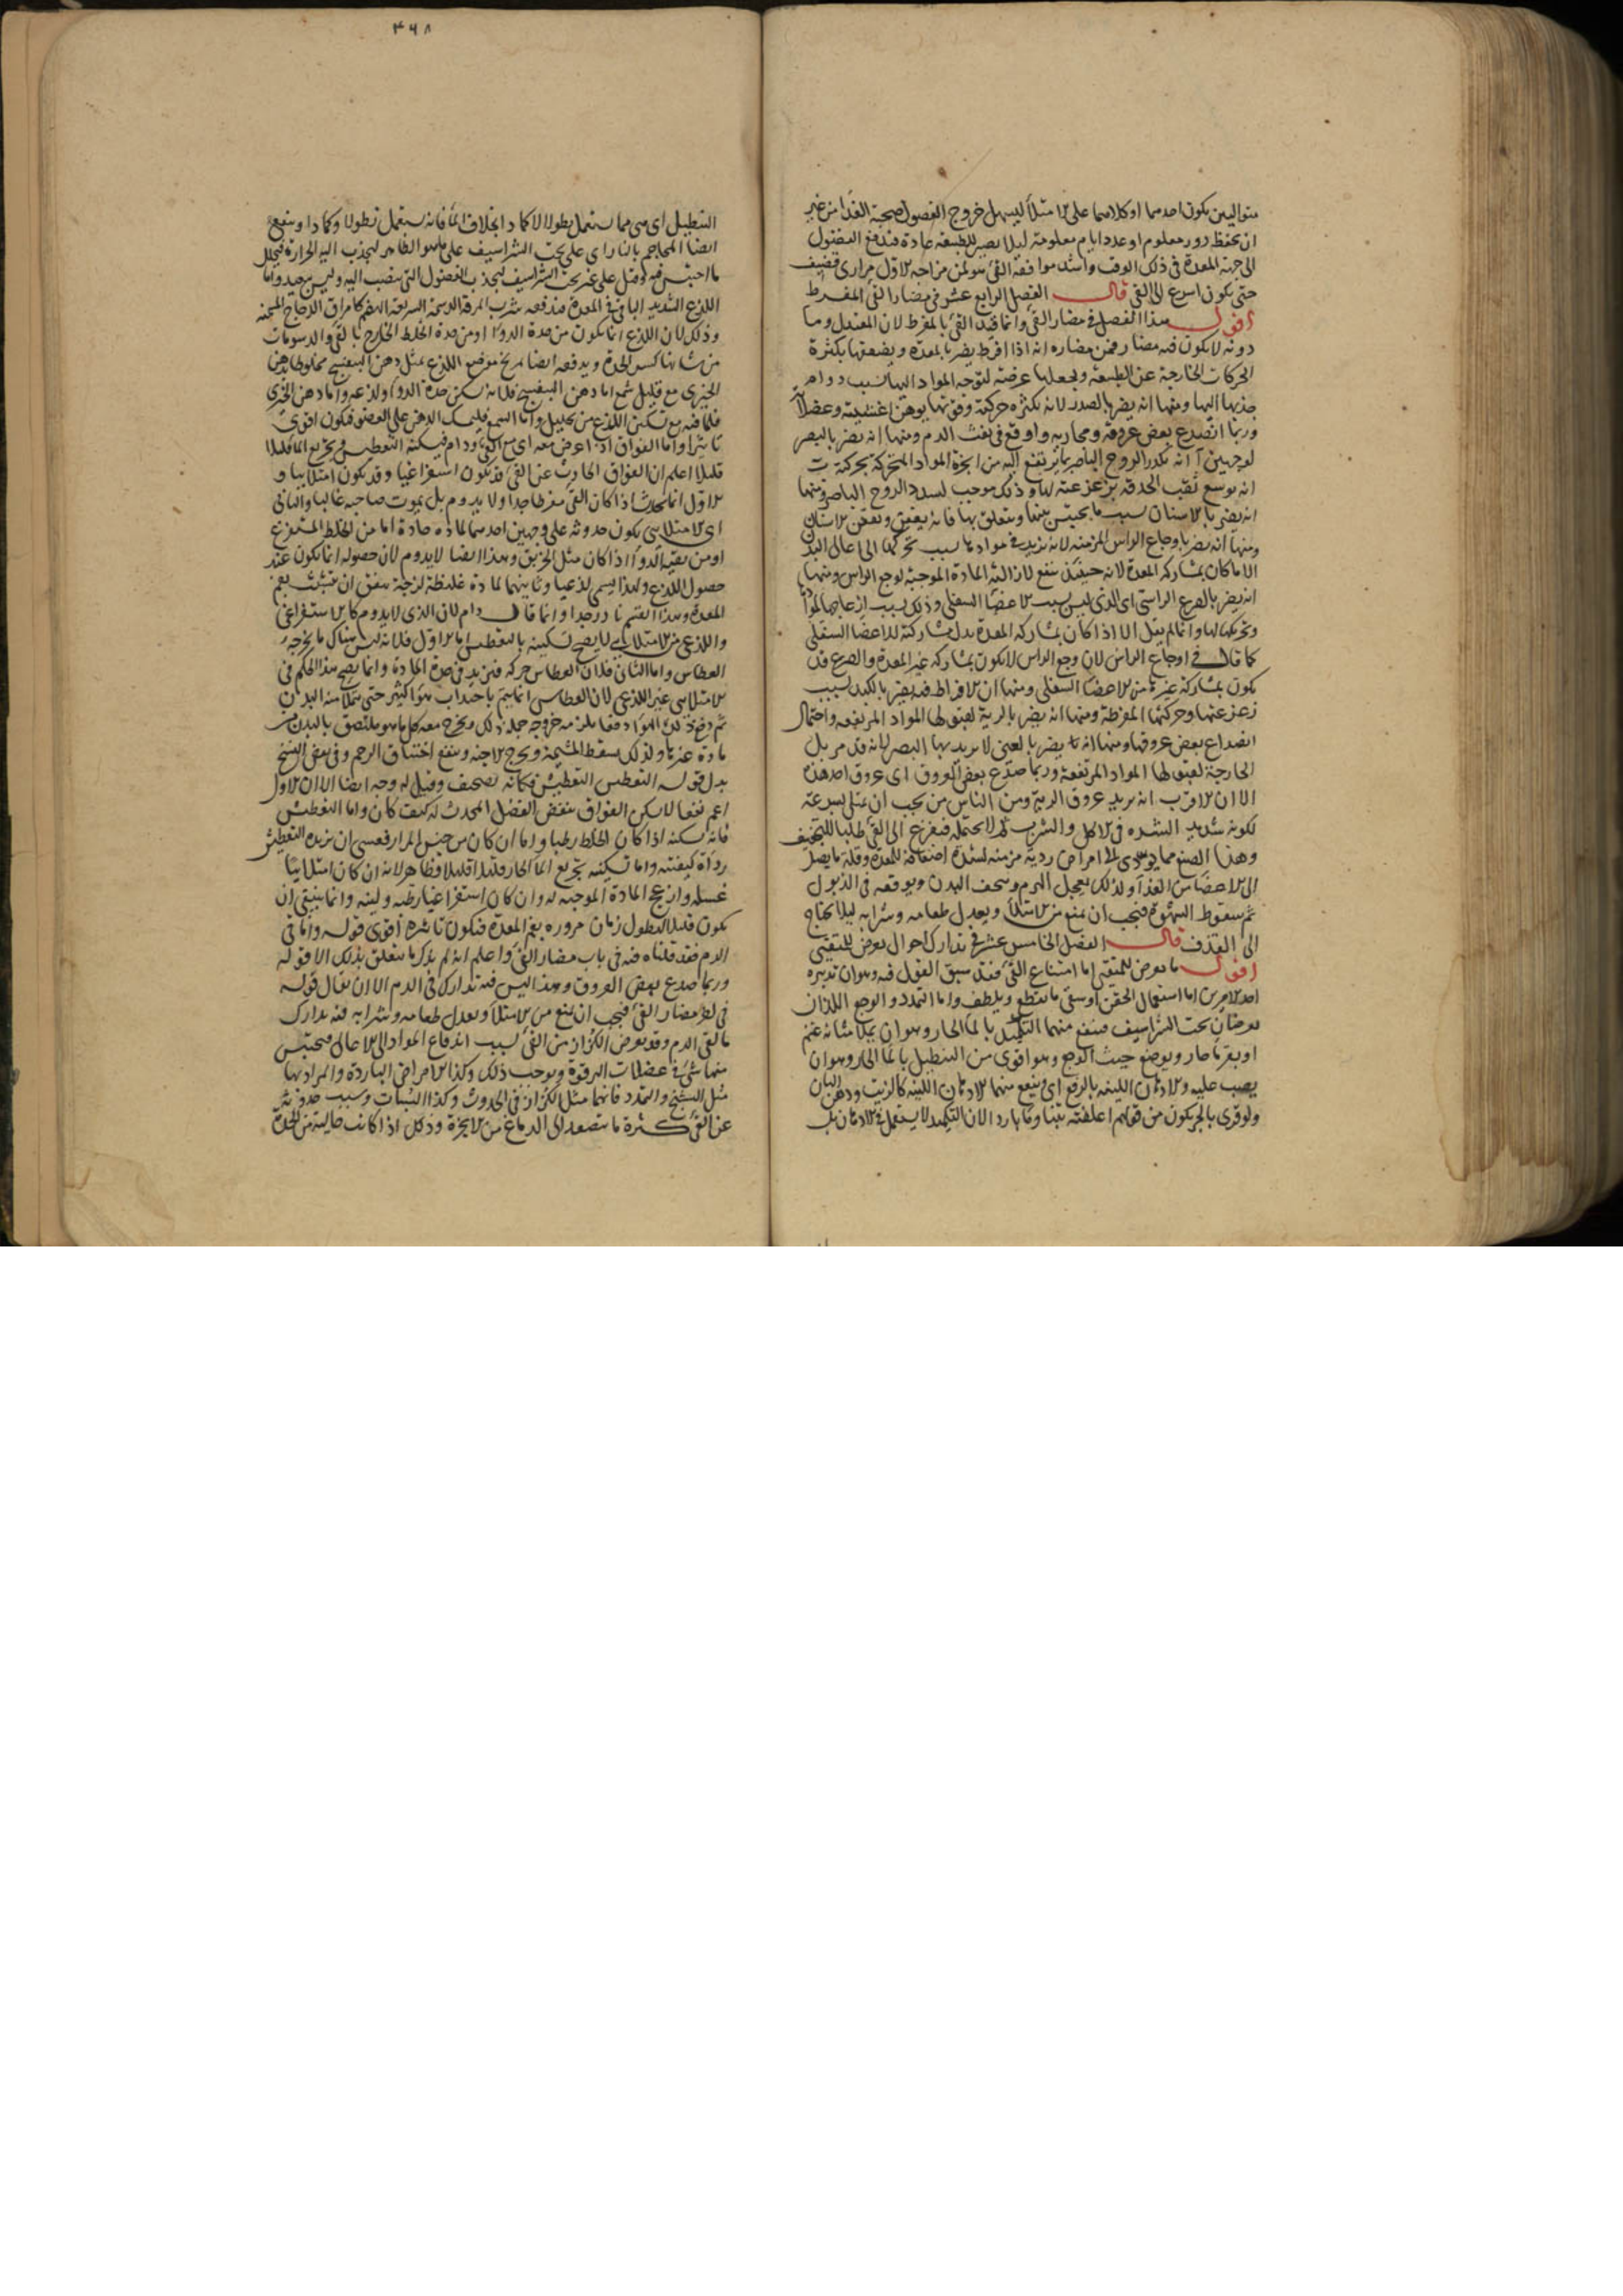 متواليين يكون احدهما او كلاهما على الامتلأ ليسهل خروج الفضول صحبة الغذا من غير
ان يحفظ دور معلوم او عدد ايام معلومة ليلا يصير للطبيعة عادة فتدفع الفضول
الى جهة المعدة فى ذلك الوقت واشد موافقة القئ هو لمن مزاجه الاول مرارى قضيف
حتى يكون اسرع الى القئ قال الفصل الرابع عشر فى مضار القئ المفرط
اقول هذا الفصل فى مضار القئ وانما قيد القئ بالمفرط لان المعتدل وما
دونه لا يكون فيه مضار فمن مضاره انه اذا افرط يضر بالمعدة ويضعفها بكثرة
الحركات الخارجة عن الطبيعة ويجعلها عرضة لتوجه المواد اليها بسبب دوام
جذبها اليها ومنها انه يضر بالصدر لانه بكثرة حركته وقوتها يوهن اغشيته وعضلاته
وربما انصدع بعض عروقه ومجاريه واوقع فى نفث الدم ومنها انه يضر بالبصر
لوجهين آ انه يكدر الروح الباصر بما يرتفع اليه من ابخرة المواد المتحركة بحركته ب
انه يوسع ثقب الحدقة بزعزعته لها وذلك موجب لتبدد الروح الباصر ومنها
انه يضر بالاسنان بسبب ما يحتبس بينها ويتعلق بها فانه يعفن ويعفن الاسنان
ومنها انه يضر باوجاع الراس المزمنة لانه يزيد فى موادها بسبب تحركها الى اعالى البدن
الا ما كان بمشاركة المعدة لانه حينئذ ينفع لازالته المادة الموجبة لوجع الراس ومنها
انه يضر بالصرع الراسى اى الذى ليس بسبب الاعضا السفلى وذلك بسبب ازعاجها المواد
وتحريكها لها وانما لم يقل الا اذا كان بمشاركة المعدة بدل مشاركة الاعضا السفلى
كما قال فى اوجاع الراس لان وجع الراس لا يكون بمشاركة غير المعدة والصرع قد
يكون بمشاركة غيرها من الاعضا السفلى ومنها ان الافراط فيه يضر بالكبد بسبب
زعزعتها وحركتها المفرطة ومنها انه يضر بالرية لقبولها المواد المرتفعة واحتمال
انصداع بعض عروقها ومنها انه يضر بالعين لا يريد بها البصر لانه قد مر بل
الجارحة لقبولها المواد المرتفعة وربما صدع بعض العروق اى عروق احد هذه
الا ان الاقرب انه يريد عروق الرية ومن الناس من يحب ان يمتلى بسرعة
لكونه شديد الشره فى الاكل والشرب ثم لا يحتمله فيفزع الى القئ طلبا للتخفيف
وهذا الصنع مما يودى الى امراض ردية مزمنة لشدة اضعافه للمعدة وقلة ما يصل
الى الاعضا من الغذا ولذلك يعجل الهرم ويسخف البدن ويوقعه فى الذبول
ثم سقوط الشهوة فيجب ان يمنع من الامتلأ ويعدل طعامه وشرابه ليلا يحتاج
الى القذف قال الفصل الخامس عشر فى تدارك احوال تعرض للمتقئ
اقول ما يعرض للمتقئ اما امتناع القئ فقد سبق القول فيه وهو ان تدبيره
احد الامرين اما استعمال الحقن او سقى ما يقطع ويلطف واما التمدد والوجع اللذان
يعرضان تحت الشراسيف فينفع منهما التكميد بالما الحار وهو ان يملا مثانة غنم
او بقر ما حار ويوضع حيث الوجع وهو اقوى من التنطيل بالما الحار وهو ان
يصب عليه والادهان اللينة بالرفع اى وينفع منهما الادهان اللينة كالزيت ودهن البان
ولو قرى بالجر يكون من قولهم اعلفته تبنا وما باردا لان التكميد لا يستعمل فى الادهان بل
۴۶۸
التنطيل اى هى مما يستعمل نطولا لا كمادا بخلاف الما فانه يستعمل نطولا وكمادا وينفع
ايضا المحاجم بالنار اى على تحت الشراسيف على ما هو الظاهر ليجذب اليه الحرارة فيحلل
ما احتبس فيه وقيل على غير تحت الشراسيف ليجذب الفضول التى تنصب اليه وليس ببعيد واما
اللذع الشديد الباقى فى المعدة فيدفعه شرب المرقة الدسمة السريعة الهضم كامراق الدجاج المسمنة
وذلك لان اللذع انما يكون من حدة الدوا او من حدة الخلط الخارج بالقئ والدسومات
من شانها كسر الحدة ويدفعه ايضا تمريخ موضع اللذع بمثل دهن البنفسج مخلوطا بدهن
الخيرى مع قليل شمع اما دهن البنفسج فلانه يسكن حدة الدوا ولذعه واما دهن الخيرى
فلما فيه مع تسكين اللذع من تحليل واما الشمع فليمسك الدهن على العضو فيكون اقوى
تاثيرا واما الفواق اذا عرض معه اى مع القئ ودام فيسكنه التعطيس وتجريع الما قليلا
قليلا اعلم ان الفواق الحادث عن القئ قد يكون استفراغيا وقد يكون امتلاييا و
الاول انما يحدث اذا كان القئ مفرطا جدا ولا يدوم بل يموت صاحبه غالبا والثانى
اى الامتلايى يكون حدوثه على وجهين احدهما لمادة حادة اما من الخلط المستفرغ
او من بقية الدوا اذا كان مثل الخربق وهذا ايضا لا يدوم لان حصوله انما يكون عند
حصول اللذع ولهذا يسمى لذعيا وثانيهما لمادة غليظة لزجة يتفق ان تتشبث بفم
المعدة وهذا القسم نادر جدا وانما قال دام لان الذى لا يدوم كالاستفراغى
واللذعى من الامتلايى لا يصح تسكينه بالتعطيس اما الاول فلانه ليس هناك ما يخرجه
العطاس واما الثانى فلان العطاس حركة فتزيد فى حدة المادة وانما يصح هذا الحكم فى
الامتلايى غير اللذعى لان العطاس انما يتم باجتذاب هوا كثير حتى يمتلا منه البدن
ثم دفع ذلك الهوا دفعا يلزمه خروجه جملة ذلك ويخرج معه كل ما هو ملتصق بالبدن من
مادة غيرها ولذلك يسقط المشيمة ويخرج الاجنة وينفع اختناق الرحم وفى بعض النسخ
بدل قوله التعطيس التعطيش فكانه تصحيف وقيل له وجه ايضا الا ان الاول
اعم نفعا لا يسكن الفواق بنفض الفضل المحدث له كيف كان واما التعطيش
فانه يسكنه اذا كان الخلط رطبا واما ان كان من جنس المرار فعسى ان يزيده التعطيش
رداة كيفيته واما تسكينه بتجريع الما الحار قليلا قليلا فظاهر لانه ان كان امتلاييا
غسله وازعج المادة الموجبة له وان كان استفراغيا رطبه ولينه وانما ينبغى ان
يكون قليلا ليطول زمان مروره بفم المعدة فيكون تاثيره اقوى قوله واما قئ
الدم فقد قلناه فيه فى باب مضار القئ واعلم انه لم يذكر ما يتعلق بذلك الا قوله
وربما صدع بعض العروق وهذا ليس فيه تدارك قئ الدم الا ان يقال قوله
فى مضار القئ فيجب ان يمنع من الامتلأ ويعدل طعامه وشرابه فيه تدارك
ما لقئ الدم وقد يعرض الكزاز من القئ بسبب اندفاع المواد الى الاعالى فيحتبس
منها شئ فى عضلات الترقوة ويوجب ذلك وكذا الامراض الباردة والمراد بها
مثل التشنج والتمدد فانهما مثل الكزاز فى الحدوث وكذا السبات وسبب حدوثه
عن القئ كثرة ما يتصعد الى الدماغ من الابخرة وذلك اذا كانت خالية من الحدة